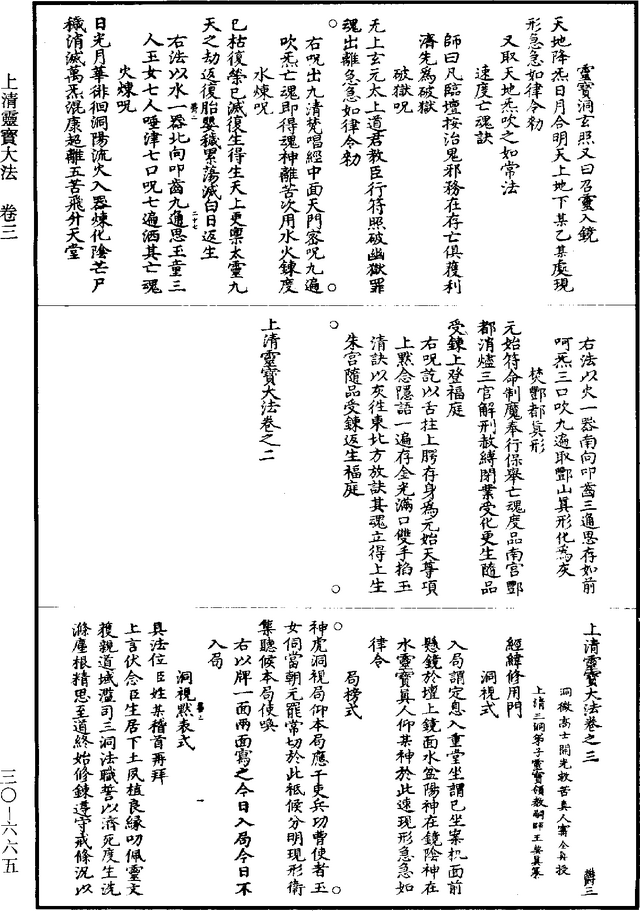 靈寶洞玄照又曰召靈入鏡
天地降炁日月合明天上地下某乙某處現
形急急如律令勑
又取天地炁吹之如常法
速度亡魂訣
師曰凡臨壇按治鬼邪務在存亡俱獲利
濟先爲破獄
破獄呪
无上玄元太上道君教臣行符照破幽獄罪
魂出離急急如律令勑
右呪出九清梵唱經中面天門密呪九遍
吹炁亡魂即得魂神離苦次用水火鍊度
水煉呪
已枯復榮已滅復生得生天上更稟太靈九
天之劫返復胎嬰穢累蕩滅白日返生
右法以水一器北向叩齒九通思玉童三
人玉女七人唾津七口呪七遍洒其亡魂
火煉呪
日光月華徘徊洞陽流火入器煉化陰芒尸
穢消滅萬炁混康超離五苦飛升天堂
右法以火一器南向叩齒三通思存如前
呵炁三口吹九遍取酆山真形化爲灰
焚酆都真形
元始符命制魔奉行保舉亡魂度品南宮酆
都消燼三官解刑赦縛閉業受化更生隨品
受鍊上登福庭
右呪訖以舌拄上腭存身爲元始天尊項
上黙念隱語一遍存金光滿口雙手掐玉
清訣以灰徃東北方放訣其魂立得上生
朱宮隨品受鍊返生福庭
上清靈寶大法卷之二
上清靈寶大法卷之三
洞微高士開光救苦真人甯全真授
上清三洞弟子靈寶領教嗣師王契真纂
經緯修用門
洞視式
入局謂定息入重堂坐謂已坐案机面前
懸鏡於壇上鏡面水盆陽神在鏡陰神在
水靈寶真人仰某神於此速現形急急如
律令
局榜式
神虎洞視局仰本局應干吏兵功曹使者玉
女伺當朝元罷常切於此祗候分明現形衛
集聽候本局使喚
右以牌一面兩面寫之今日入局今日不
入局
洞視黙表式
具法位臣姓某稽首再拜
上言伏念臣生居下土夙植良緣叨佩靈文
獲親道域濫司三洞法職誓以濟死度生洗
滌塵根精思至道終始修鍊遵守戒條況以
上清靈寶大法　卷三
三〇—六六五